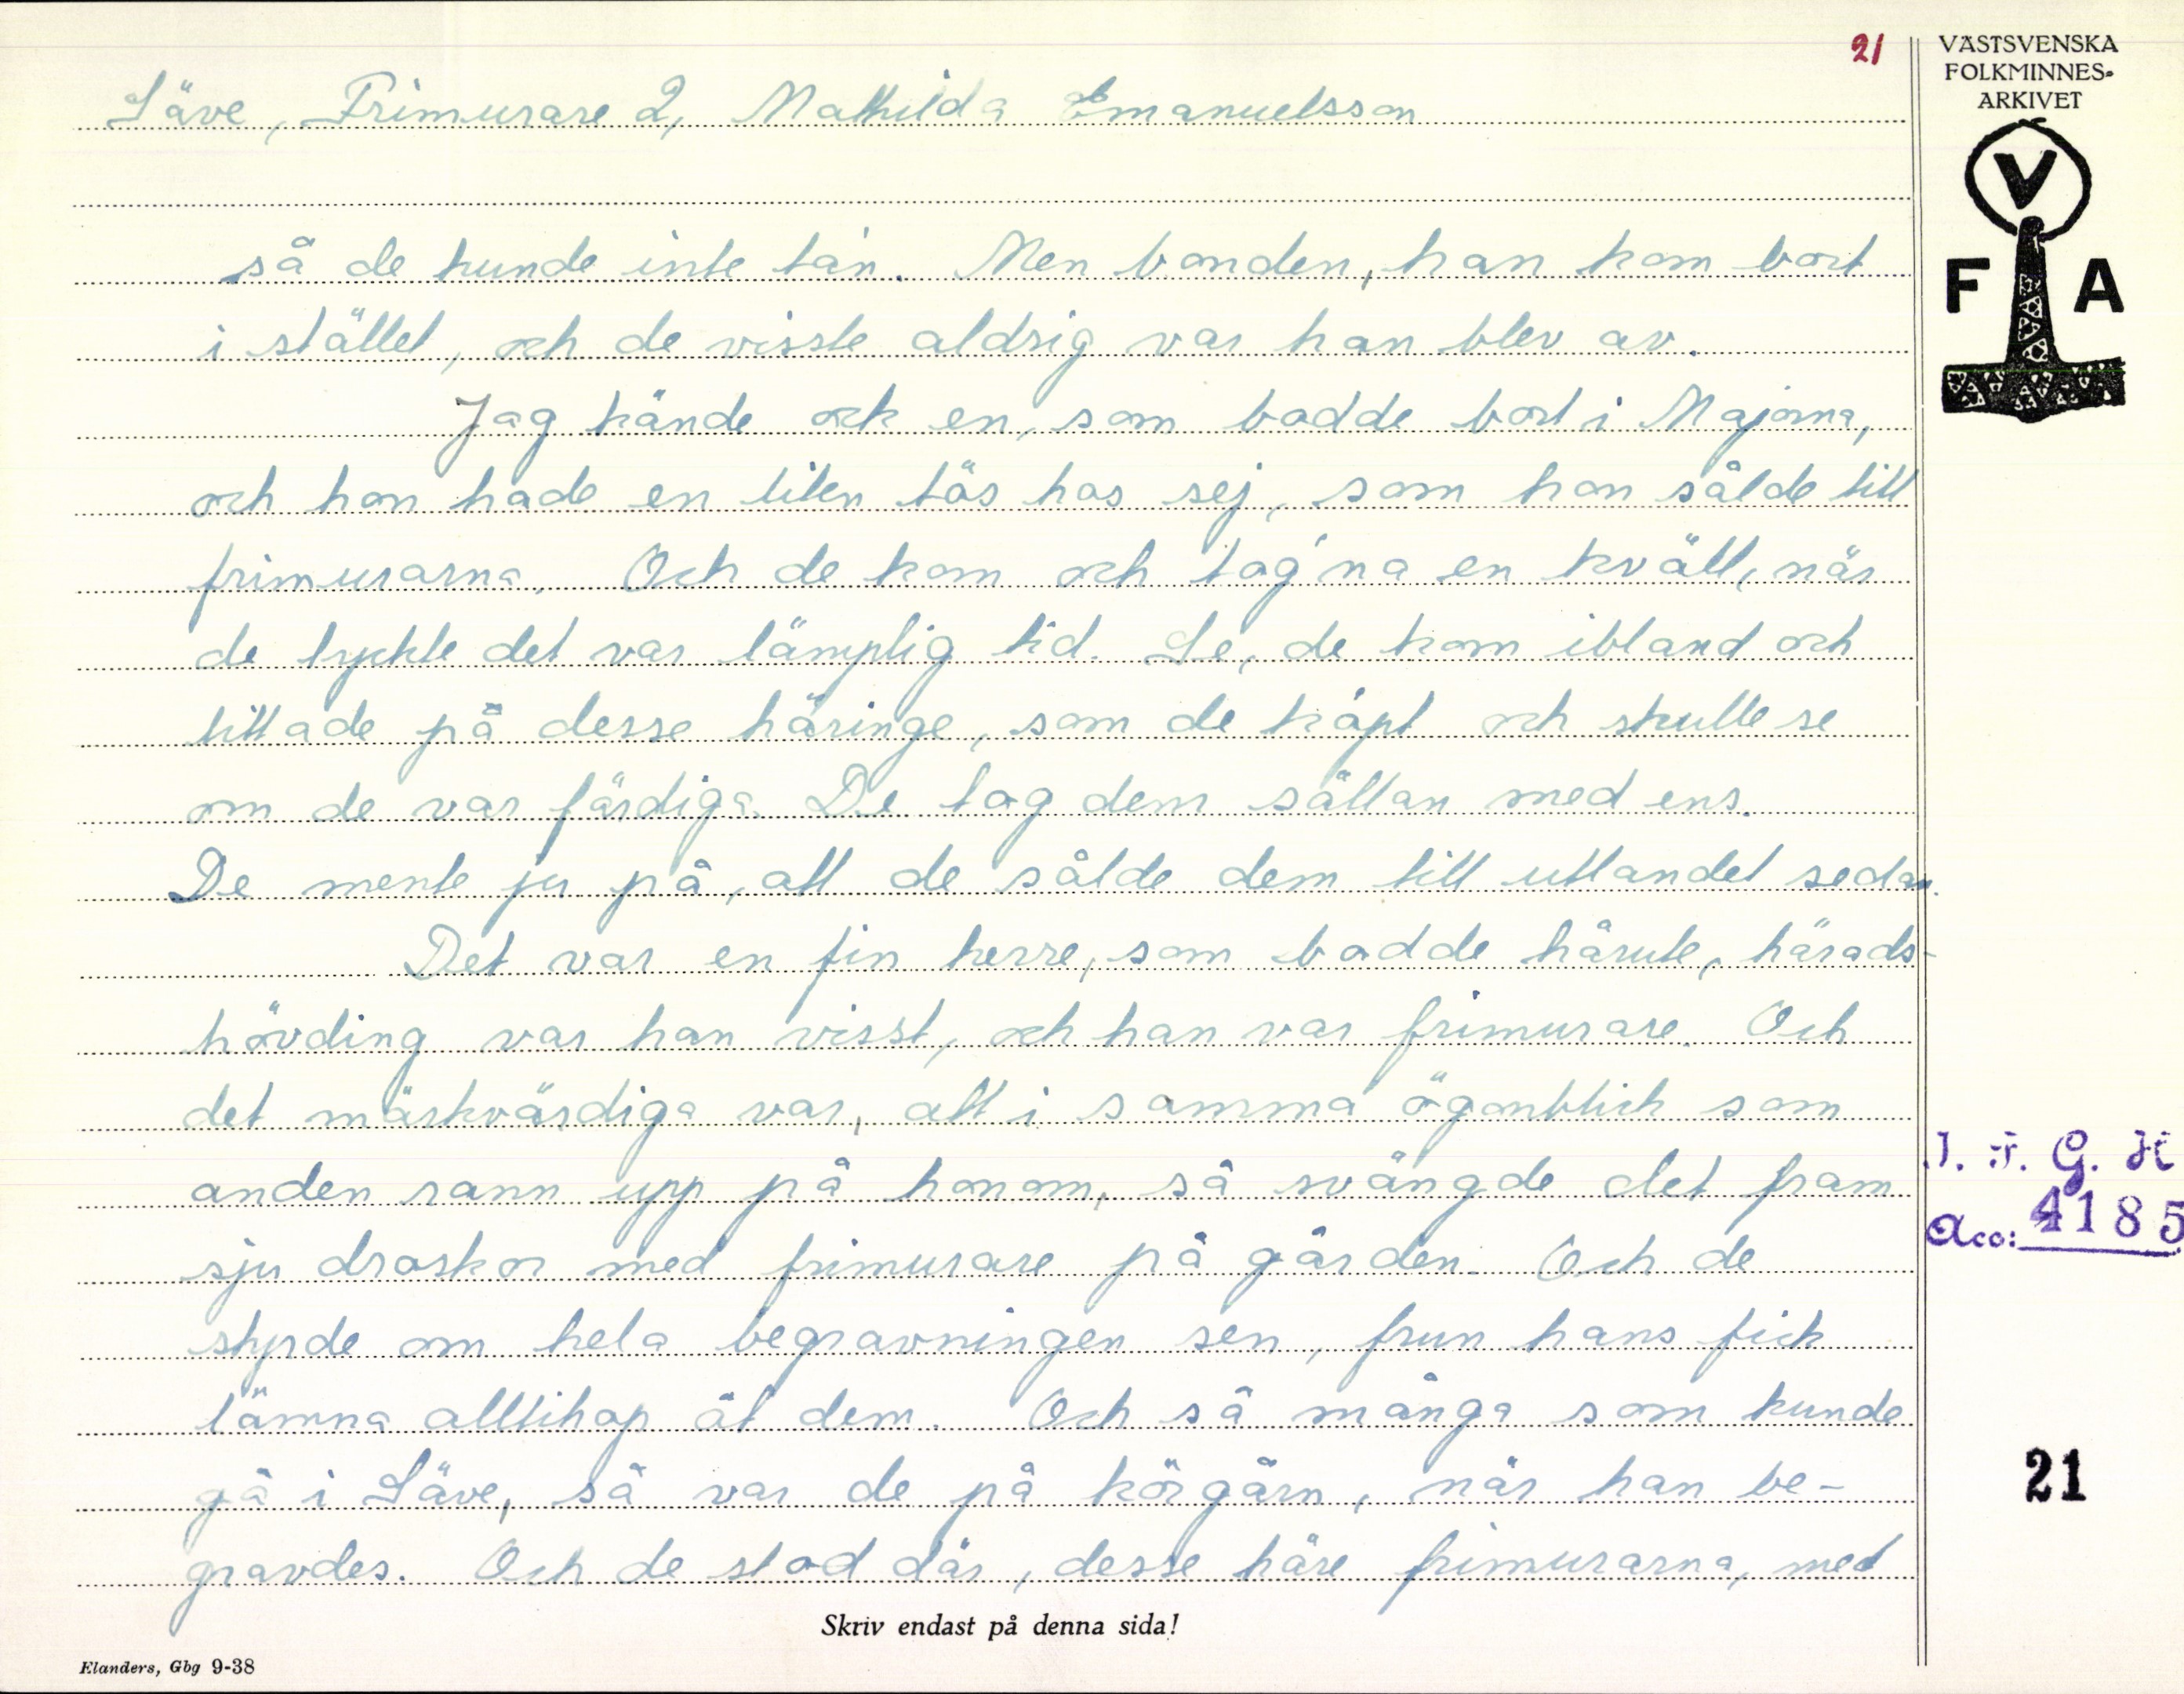 21
VÄSTSVENSKA
FOLKMINNES-
ARKIVET
V
F A
Säve, Frimurare 2, Mathilda Emanuelsson
så de kunde inte ta'n. Men bonden, han kom bort
i stället, och de visste aldrig var han blev av.
Jag kände ock en, som bodde bort i Majorna,
och hon hade en liten tös hos sej, som hon sålde till
frimurarna. Och de kom och tog'na en kväll, när
de tyckte det var lämplig tid. Se, de kom ibland och
tittade på desse häringe, som de köpt och skulle se
om de var färdiga. De tog dem sällan med ens.
De mente ju på, att de sålde dem till utlandet sedan.
Det var en fin herre, som bodde härute, härads-
hövding var han visst, och han var frimurare. Och
det märkvärdiga var, att i samma ögonblick som
anden rann upp på honom, så svängde det fram
sju droskor med frimurare på gården. Och de
styrde om hela begravningen sen, frun hans fick
lämna alltihop åt dem. Och så många som kunde
gå i Säve, så var de på körgårn, när han be-
gravdes. Och de stod där, desse häre frimurarna, med
I. F. G. H
Acc: 4185
21
Skriv endast på denna sida!
Elanders, Gbg 9-38